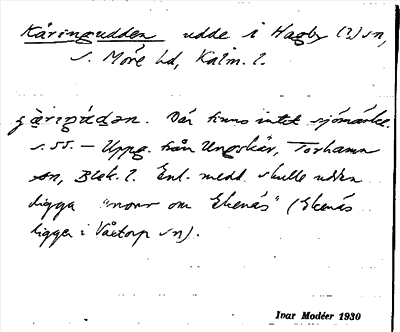 Käringudden udde i Hagby (?) sn,
S. Möre hd, Kalm. l.
Där finns intet sjömärke.
s. 55. – Uppg. från Ungskär, Torhamn
sn, Blek. l. Enl. medd. skulle udden
ligga "norr om Ekenäs" (Ekenäs
ligger i Våxtorp sn).
Ivar Modéer 1930